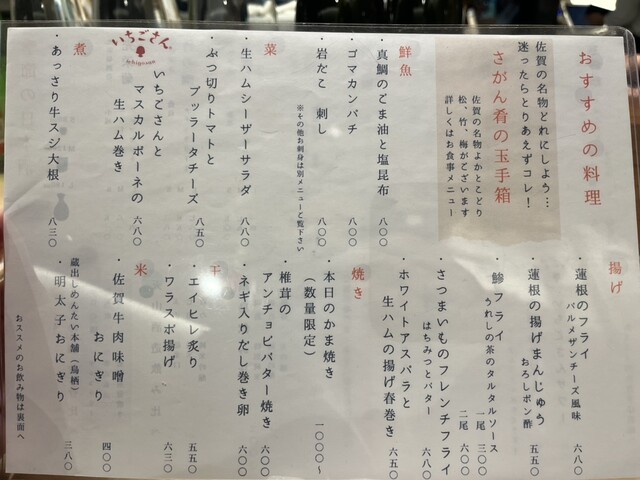 おすすめの料理
佐賀の名物どれにしよう…
迷ったらとりあえずコレ！
さがん肴の玉手箱
佐賀の名物よかとこどり
松、竹、梅がございます
詳しくはお食事メニュー
鮮魚
・真鯛のごま油と塩昆布 八〇〇
・ゴマカンパチ 八〇〇
・岩だこ 刺し 八〇〇
※その他お刺身は別メニューご覧下さい
菜
・生ハムシーザーサラダ 八八〇
・ぶつ切りトマトと
ブッラータチーズ 八五〇
いちごさん
ichigosan
・いちごさんと
マスカルポーネの
生ハム巻き 六八〇
煮
・あっさり牛スジ大根 八三〇
揚げ
・蓮根のフライ
パルメザンチーズ風味 六八〇
・蓮根の揚げまんじゅう
おろしポン酢 五五〇
・鯵フライ
うれしの茶のタルタルソース
一尾 三〇〇
二尾 六〇〇
・さつまいものフレンチフライ
はちみつとバター 六八〇
・ホワイトアスパラと
生ハムの揚げ春巻き 六五〇
焼き
・本日のかま焼き
（数量限定） 一〇〇〇〜
・椎茸の
アンチョビバター焼き 六〇〇
・ネギ入りだし巻き卵 六〇〇
干
・エイヒレ炙り 五五〇
・ワラスボ揚げ 六三〇
米
・佐賀牛肉味噌
おにぎり 四〇〇
蔵出しめんたい本舗（鳥栖）
・明太子おにぎり 三八〇
おススメのお飲み物は裏面へ